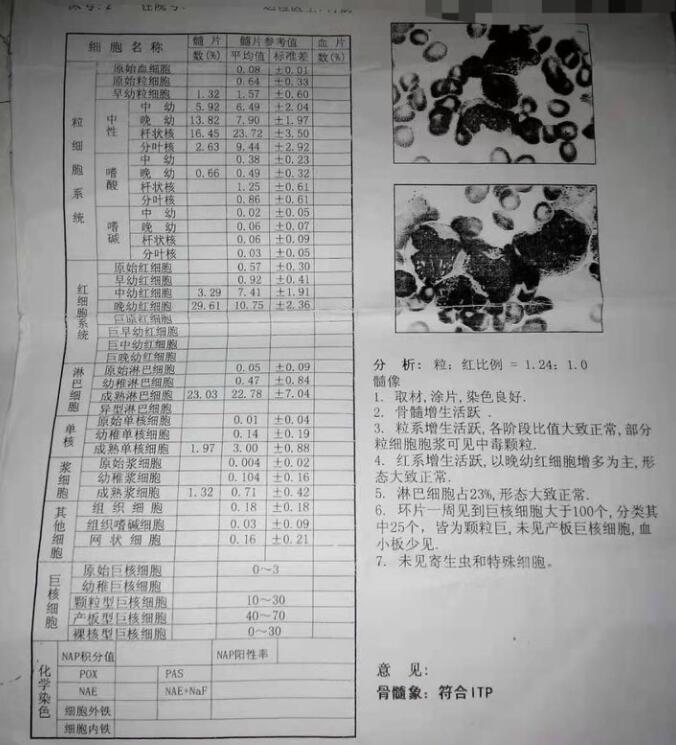 细胞名称 髓片 髓片参考值 血片
数(%) 平均值 标准差 数(%)
粒细胞系统
原始血细胞 0.08 ±0.01
原始粒细胞 0.64 ±0.33
早幼粒细胞 1.32 1.57 ±0.60
中性 中幼 5.92 6.49 ±2.04
晚幼 13.82 7.90 ±1.97
杆状核 16.45 23.72 ±3.50
分叶核 2.63 9.44 ±2.92
嗜酸 中幼 0.38 ±0.23
晚幼 0.66 0.49 ±0.32
杆状核 1.25 ±0.61
分叶核 0.86 ±0.61
嗜碱 中幼 0.02 ±0.05
晚幼 0.06 ±0.07
杆状核 0.06 ±0.09
分叶核 0.03 ±0.05
红细胞系统
原始红细胞 0.57 ±0.30
早幼红细胞 0.92 ±0.41
中幼红细胞 3.29 7.41 ±1.91
晚幼红细胞 29.61 10.75 ±2.36
巨原红细胞
巨早幼红细胞
巨中幼红细胞
巨晚幼红细胞
淋巴细胞
原始淋巴细胞 0.05 ±0.09
幼稚淋巴细胞 0.47 ±0.84
成熟淋巴细胞 23.03 22.78 ±7.04
异型淋巴细胞
单核
原始单核细胞 0.01 ±0.04
幼稚单核细胞 0.14 ±0.19
成熟单核细胞 1.97 3.00 ±0.88
浆细胞
原始浆细胞 0.004 ±0.02
幼稚浆细胞 0.104 ±0.16
成熟浆细胞 1.32 0.71 ±0.42
其他细胞
组织细胞 0.18 ±0.18
组织嗜碱细胞 0.03 ±0.09
网状细胞 0.16 ±0.21
巨核细胞
原始巨核细胞 0~3
幼稚巨核细胞
颗粒型巨核细胞 10~30
产板型巨核细胞 40~70
裸核型巨核细胞 0~30
化学染色
NAP积分值 NAP阳性率
POX PAS
NAE NAE+NaF
细胞外铁
细胞内铁
分析: 粒:红比例 = 1.24:1.0
髓像
1. 取材,涂片,染色良好.
2. 骨髓增生活跃.
3. 粒系增生活跃,各阶段比值大致正常,部分
粒细胞胞浆可见中毒颗粒.
4. 红系增生活跃,以晚幼红细胞增多为主,形
态大致正常.
5. 淋巴细胞占23%,形态大致正常.
6. 环片一周见到巨核细胞大于100个,分类其
中25个, 皆为颗粒巨,未见产板巨核细胞,血
小板少见.
7. 未见寄生虫和特殊细胞。
意见:
骨髓象: 符合ITP